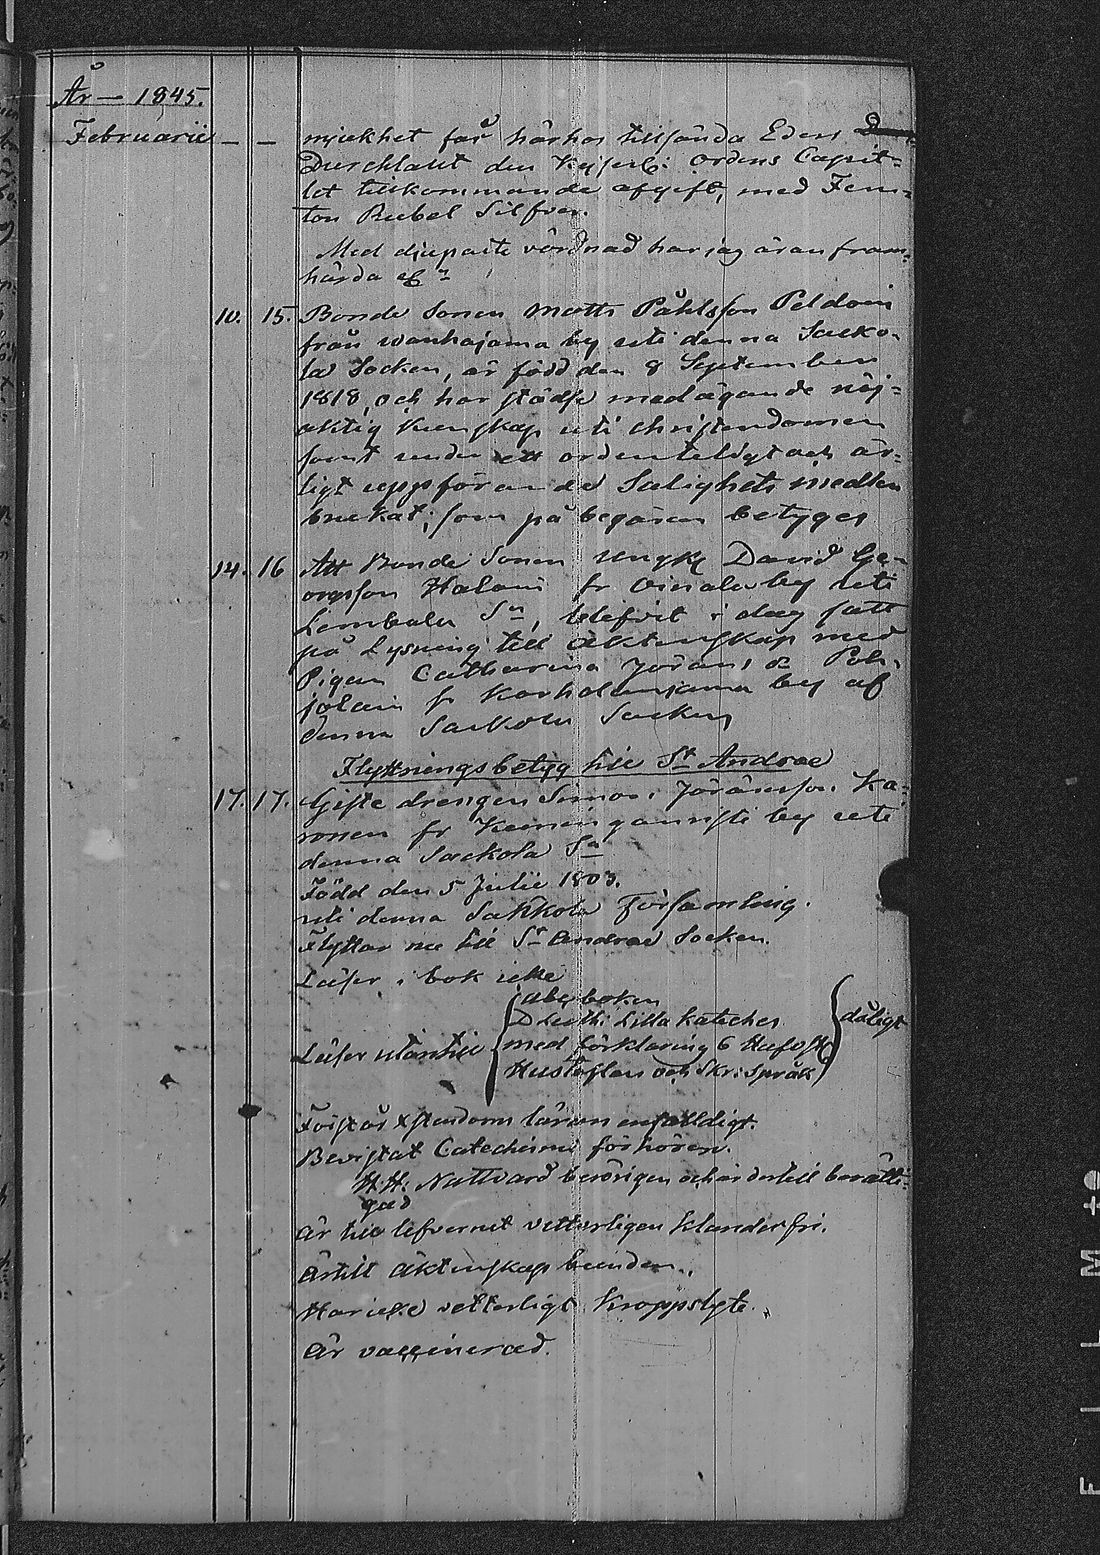 År — 1845.
Februarii — — mjukhet får härhos tillsända Eders
Durchlaut den Kejserl: Ordens Capit=
let tillkommande afgift, med Fem=
ton Rubel Silfver.
Med djupaste vördnad har jag äran fram=
härda etc
10. 15. Bonde Sonen Matts Påhlsson Peldoin
från wanhajama by uti denna Sacko=
la Socken, är född den 8 September
1818, och har städse medägande nöj=
aktig kunskap uti christendomen
samt under ett ordenteligt och är=
ligt uppförande Salighets medlen
brukat; som på begäran betyges
14. 16 Att Bonde Sonen Ungk David Ge=
orgsson Halani fr by uti
Lembala Sn, blefvit i dag satt
på Lysning till äktenskap med
Pigan Catharina Jörans dr Poh=
jolain fr Karholanjama by af
denna Sackola Socken
Flyttningsbetyg till St Andrae
17. 17. Gifte drengen Simon Jöransson Ka=
ronen fr by uti
denna Sackola Sn
Född den 5 Julii 1803.
uti denna Sakkola Församling.
Flyttar nu till St Andrae Socken.
Läser i bok icke
abcboken
D Luth: Lilla Kateches
Läser utantill med förklaring 6 Hufvst dåligt
Hustaflan och Skr: språk
Förstår Xstendoms läran enfalldigt.
Bevistat Catechismi förhören.
H. H. Nattvard berörigen och är dertill berätti=
gad
Är till lefvernet vetterligen klanderfri.
Är till äktenskap bunden.
Har icke vetterligt Kroppslyte.
Är vaccinerad.
FILMte